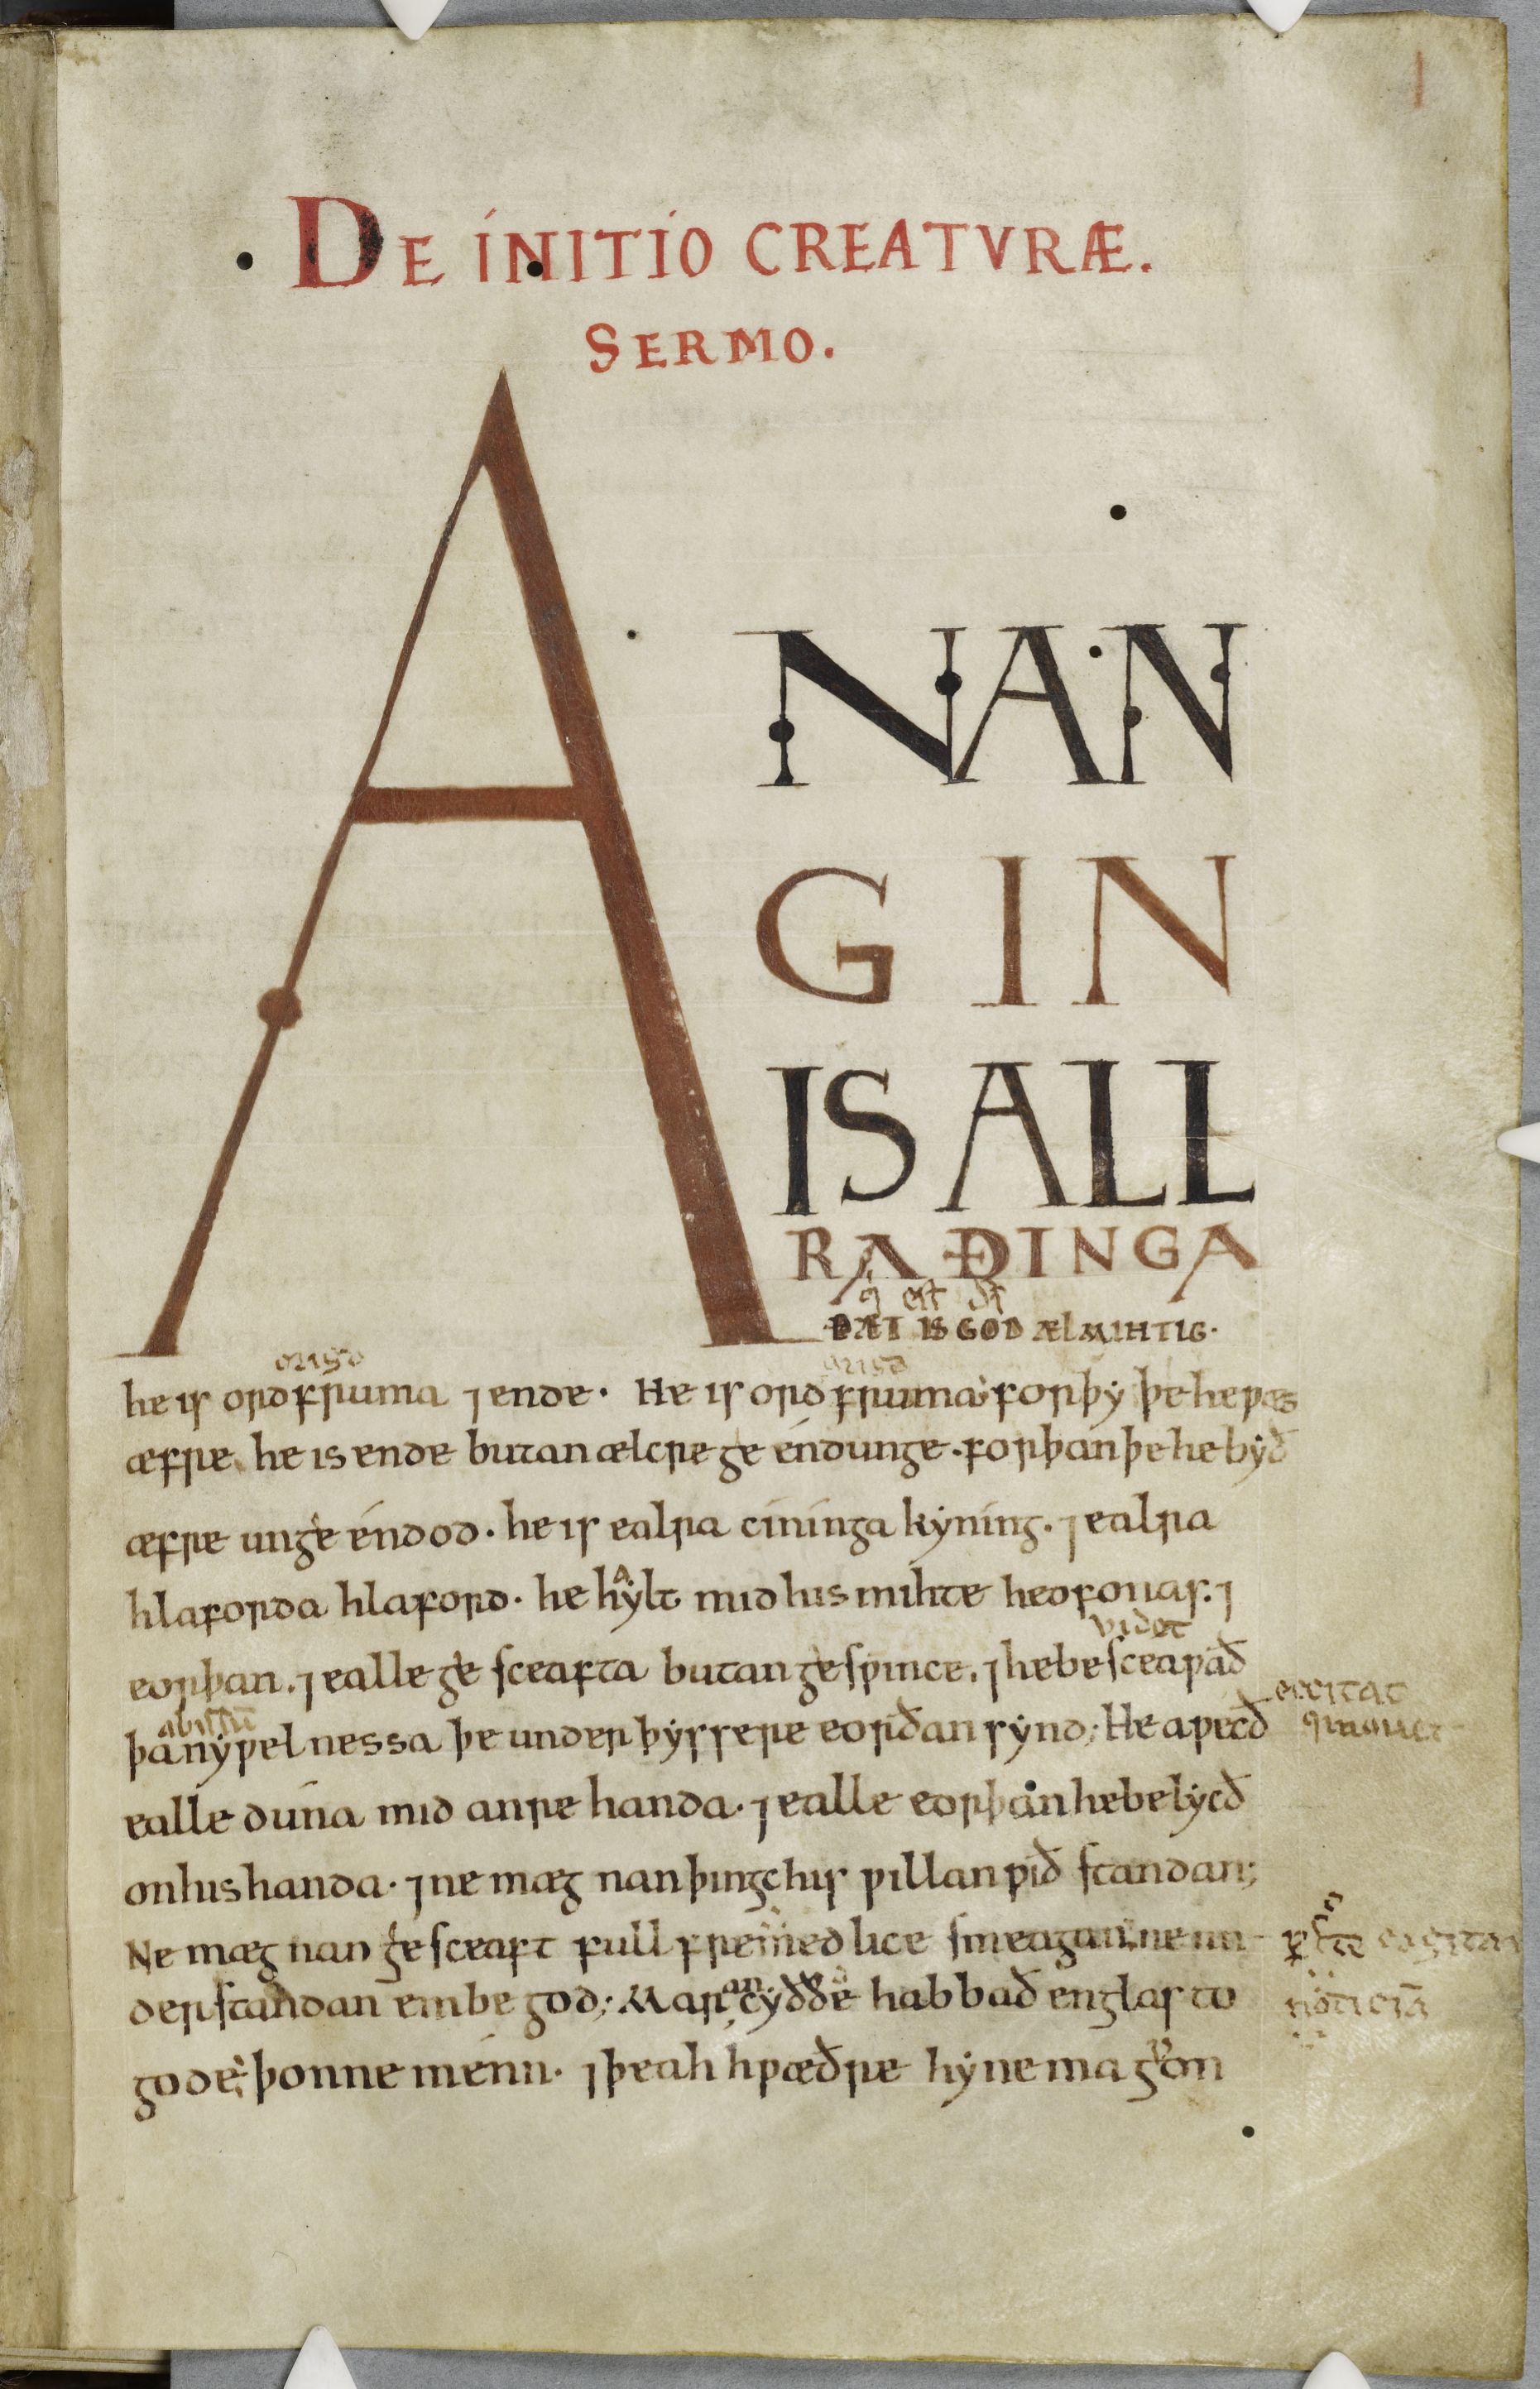 DE INITIO CREATVRÆ.
SERMO.
ANAN
GIN
IS ALL
RA ÐINGA
q est ds
ÐÆT IS GOD ÆLMIHTIG.
origo origo
he is ordfruma ⁊ ende. He is ordfruma forþy þe he wæs
æfre. he is ende butan ælcre ge éndunge. forþan þe he byð
æfre unge éndod. he is ealra cininga kyning. ⁊ ealra
hlaforda hlaford. he hylt mid his mihte heofonas. ⁊
videt
eorþan. ⁊ ealle ge sceafta butan geswince. ⁊ he besceawað
excitat
abissu
þa nywelnessa þe under þyssere eorðan synd; He awecð
ealle duna mid anre handa. ⁊ ealle eorþan he belycð
on his handa. ⁊ ne mæg nan þingc his willan wið standan;
Ne mæg nan gesceaft full fremedlice smeagan ne un
derstandan embe god; Maran cyððe habbað englas to
noticia
gode þonne menn. ⁊ þeah hwæðre hy ne magon